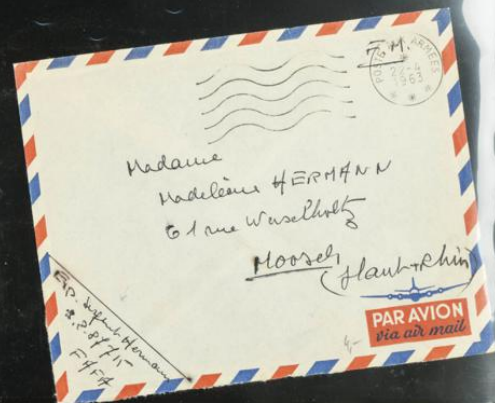 F. M.
POSTE AUX ARMEES
Madame
Madeleine HERMANN
61 rue Werschholtz
Moosch
(Haut-Rhin)
PAR AVION
via air mail
Exp. Sergent Hermann
S.P. 87715
F.A.F.A